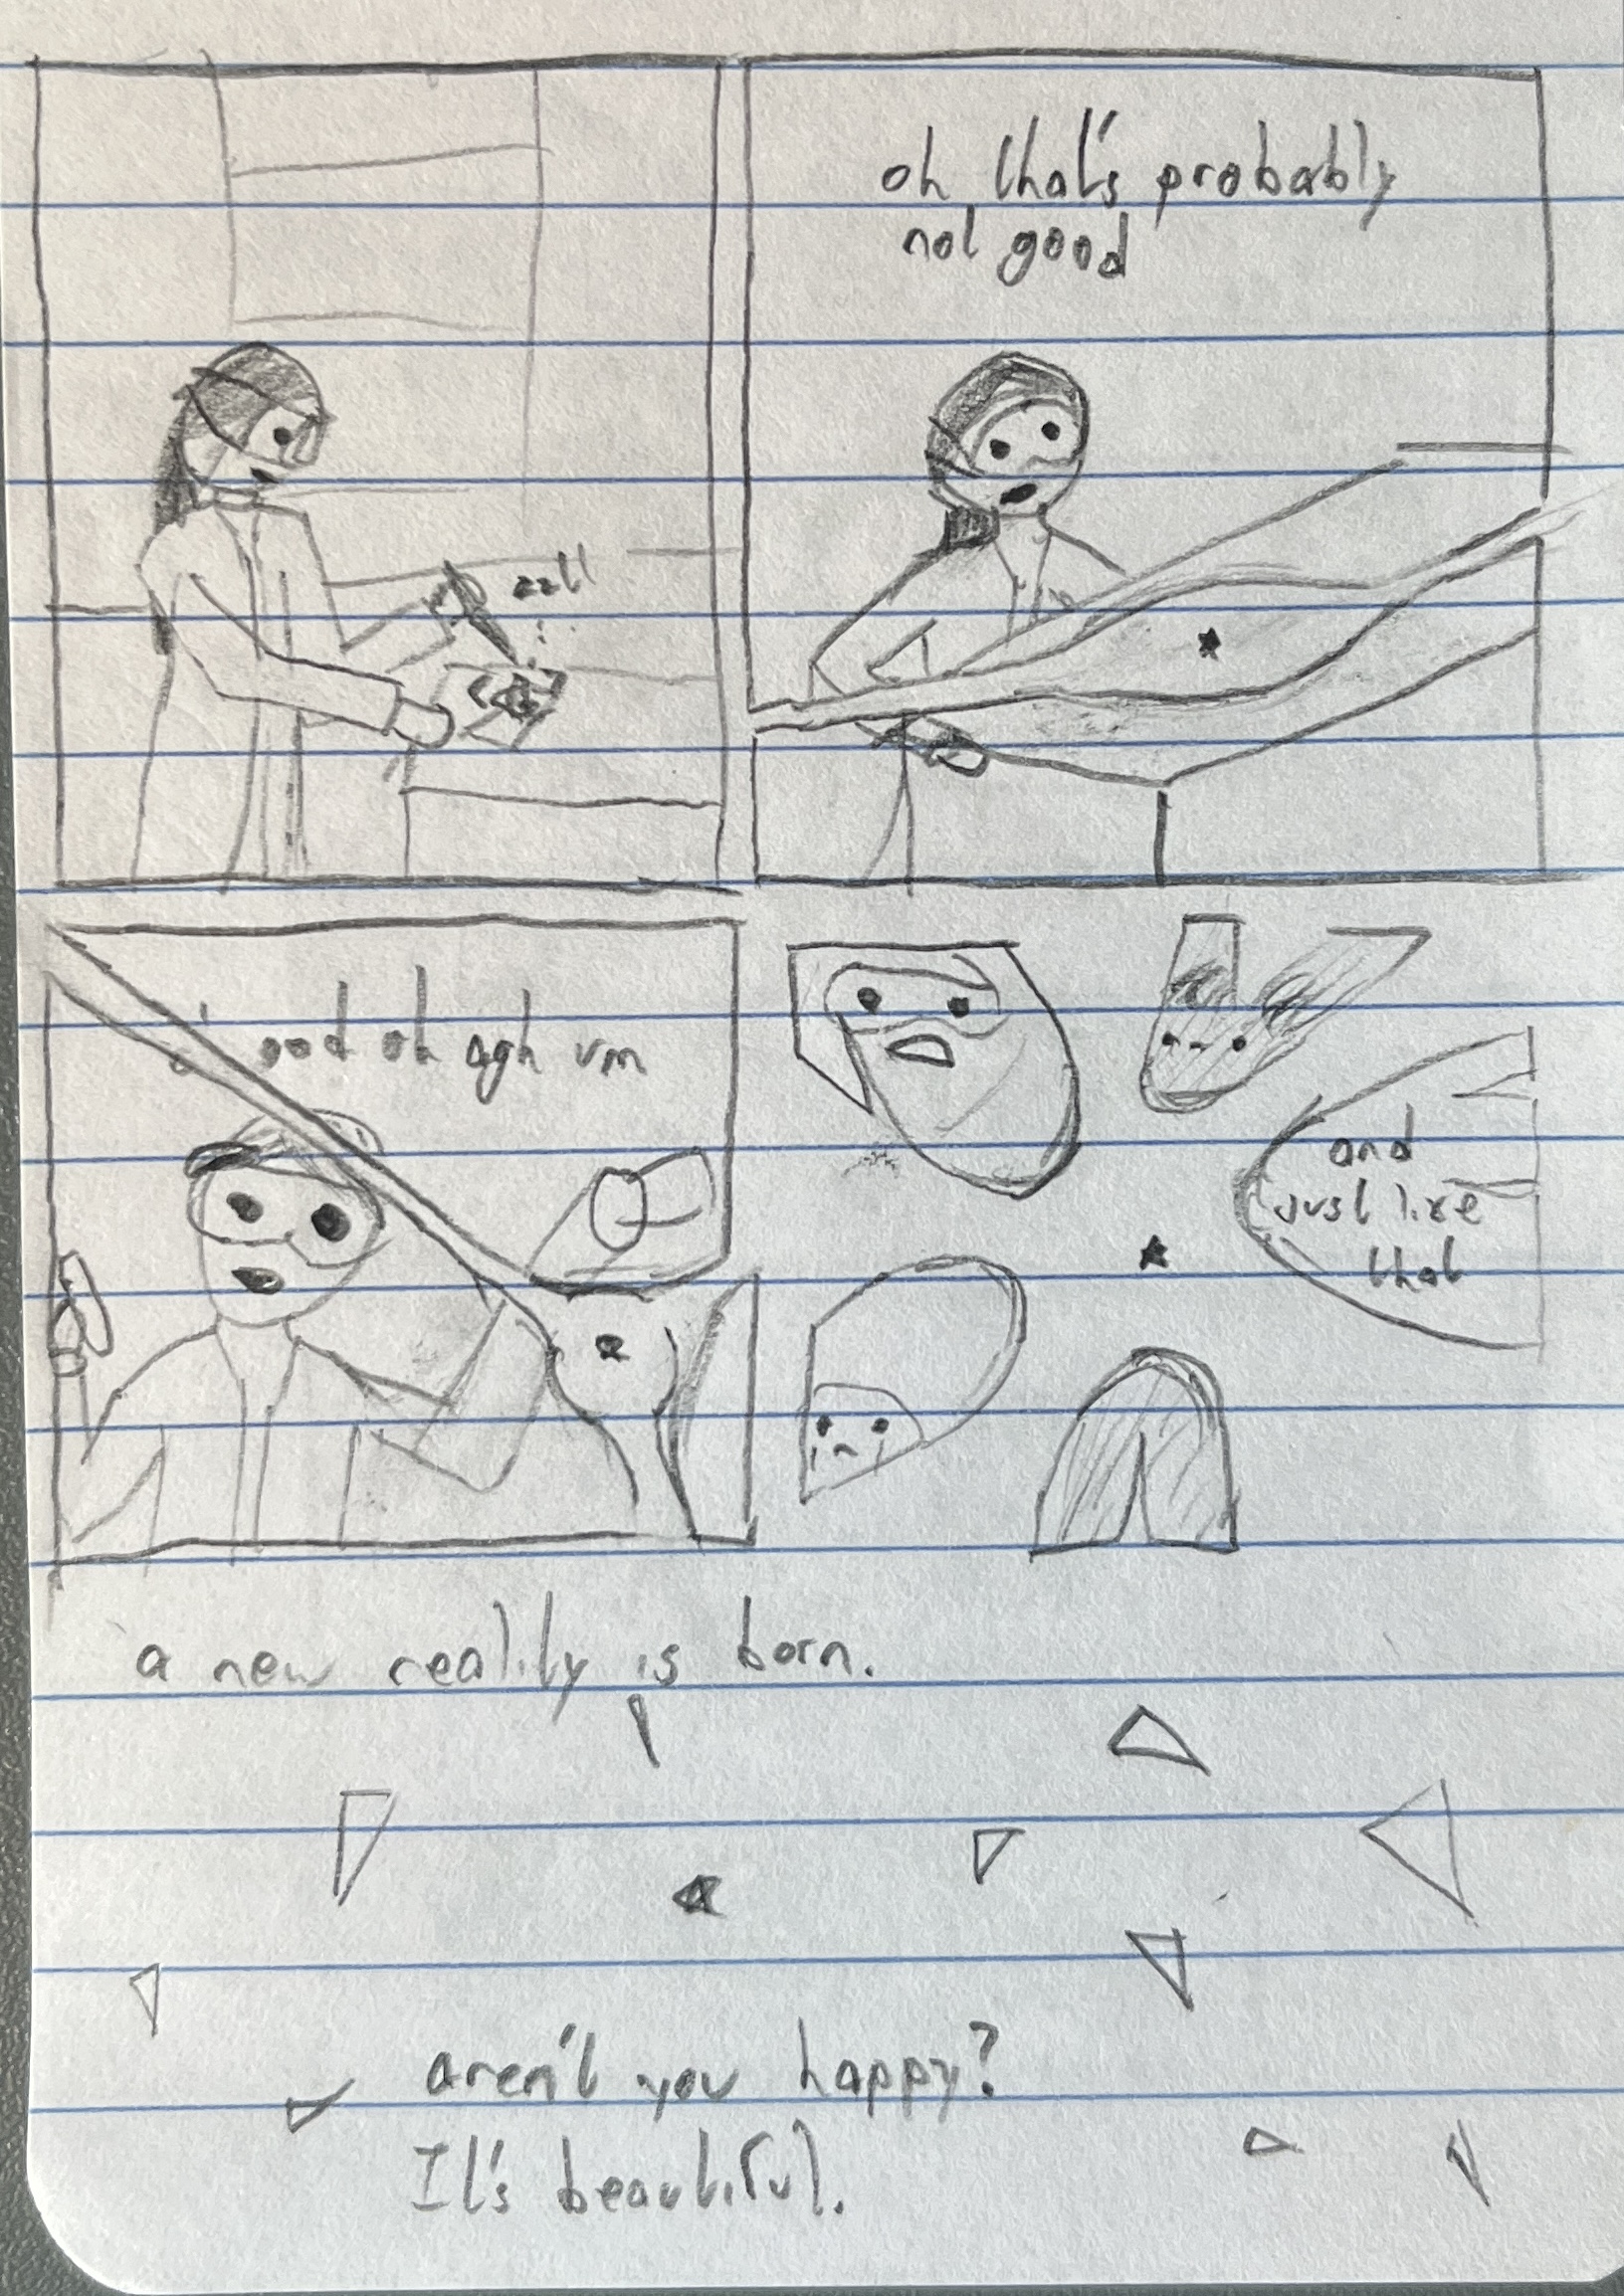 oh that's probably
not good
good oh agh um
and
just like
that
a new reality is born.
aren't you happy?
It's beautiful.